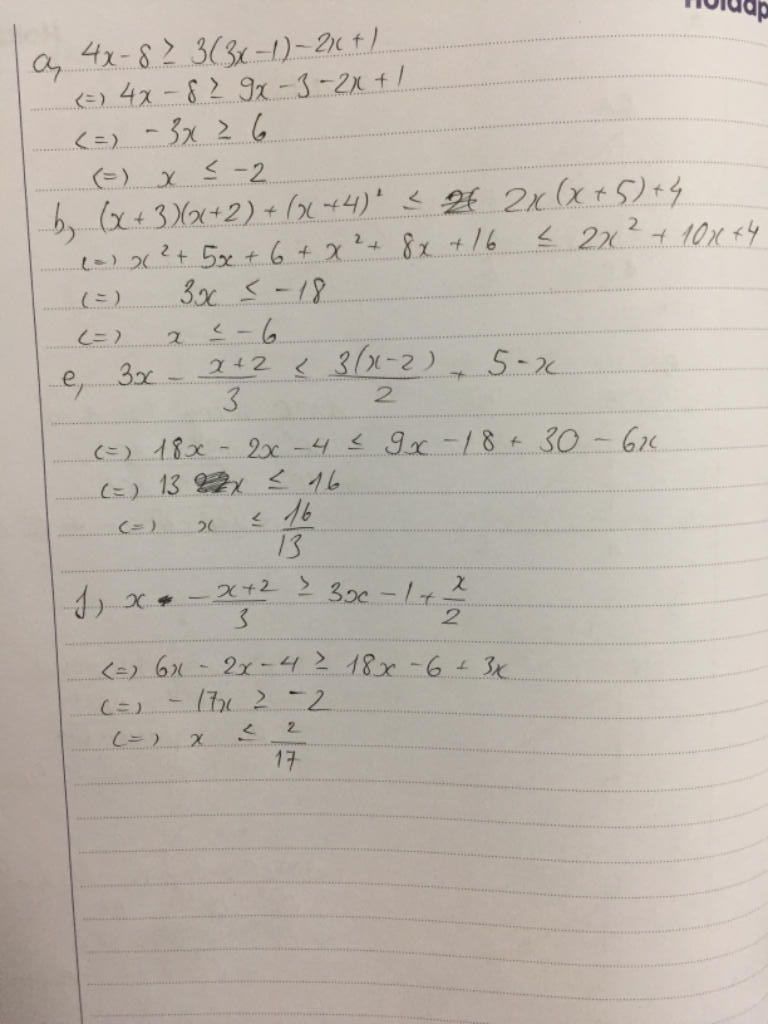 a, 4x-8 ≥ 3(3x-1)-2x+1
<=> 4x-8 ≥ 9x-3-2x+1
<=> -3x ≥ 6
<=> x ≤ -2
b, (x+3)(x+2)+(x+4)² ≤ 2x(x+5)+4
<=> x²+5x+6+x²+8x+16 ≤ 2x²+10x+4
<=> 3x ≤ -18
<=> x ≤ -6
e, 3x - (x+2)/3 ≤ 3(x-2)/2 + 5-x
<=> 18x-2x-4 ≤ 9x-18+30-6x
<=> 13x ≤ 16
<=> x ≤ 16/13
f, x - (x+2)/3 ≥ 3x-1+x/2
<=> 6x-2x-4 ≥ 18x-6+3x
<=> -17x ≥ -2
<=> x ≤ 2/17